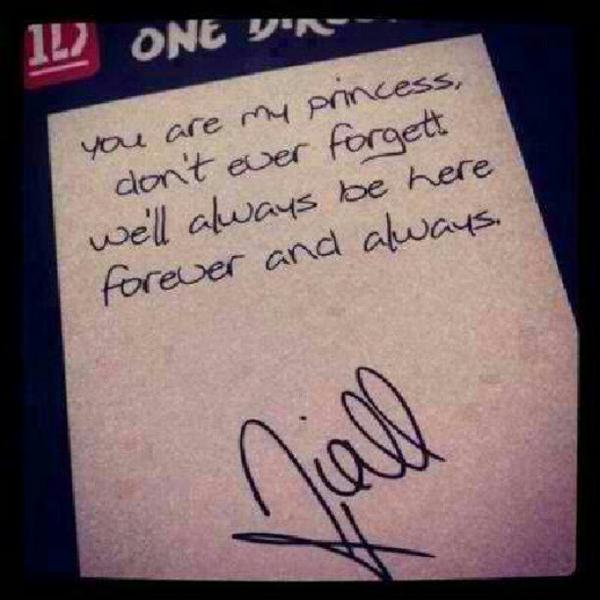 1D
ONE
you are my princess,
don't ever forgett
we'll always be here
forever and always.
Niall